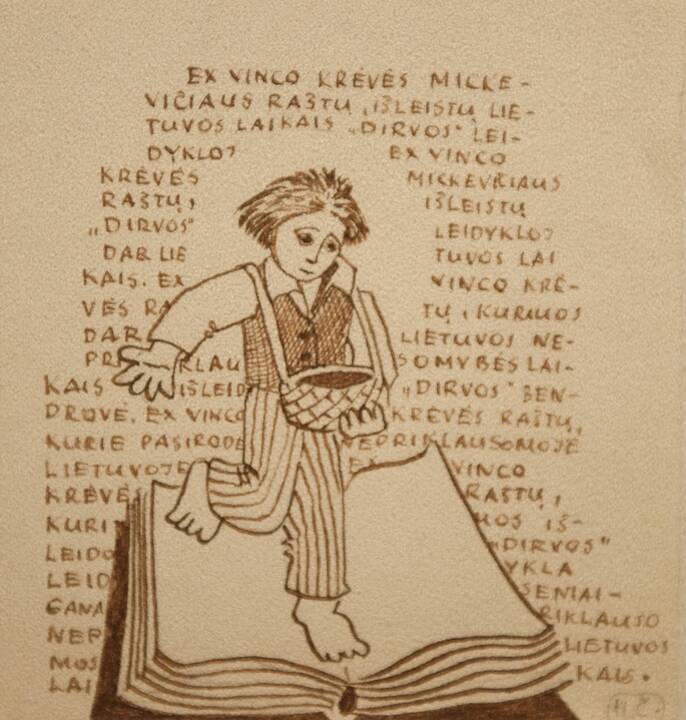 EX VINCO KRĖVĖS MICKE-
VIČIAUS RAŠTŲ, IŠLEISTŲ LIE-
TUVOS LAIKAIS „DIRVOS" LEI-
DYKLOJ EX VINCO
KRĖVĖS MICKEVIČIAUS
RAŠTŲ, IŠLEISTŲ
„DIRVOS" LEIDYKLOJ
DAR LIE TUVOS LAI
KAIS. EX VINCO KRĖ-
VĖS RA TŲ, KURIUOS
DAR LIETUVOS NE-
PR KLAU SOMYBĖS LAI-
KAIS IŠLEID „DIRVOS" BEN-
DROVĖ. EX VINCO KRĖVĖS RAŠTŲ,
KURIE PASIRODĖ NEPRIKLAUSOMOJE
LIETUVOJE EX VINCO
KRĖVĖS RAŠTŲ,
KURI UOS IŠ-
LEIDO „DIRVOS"
LEID YKLA
GANA SENIAI-
NEP RIKLAUSO
MOS LIETUVOS
LAI KAIS.